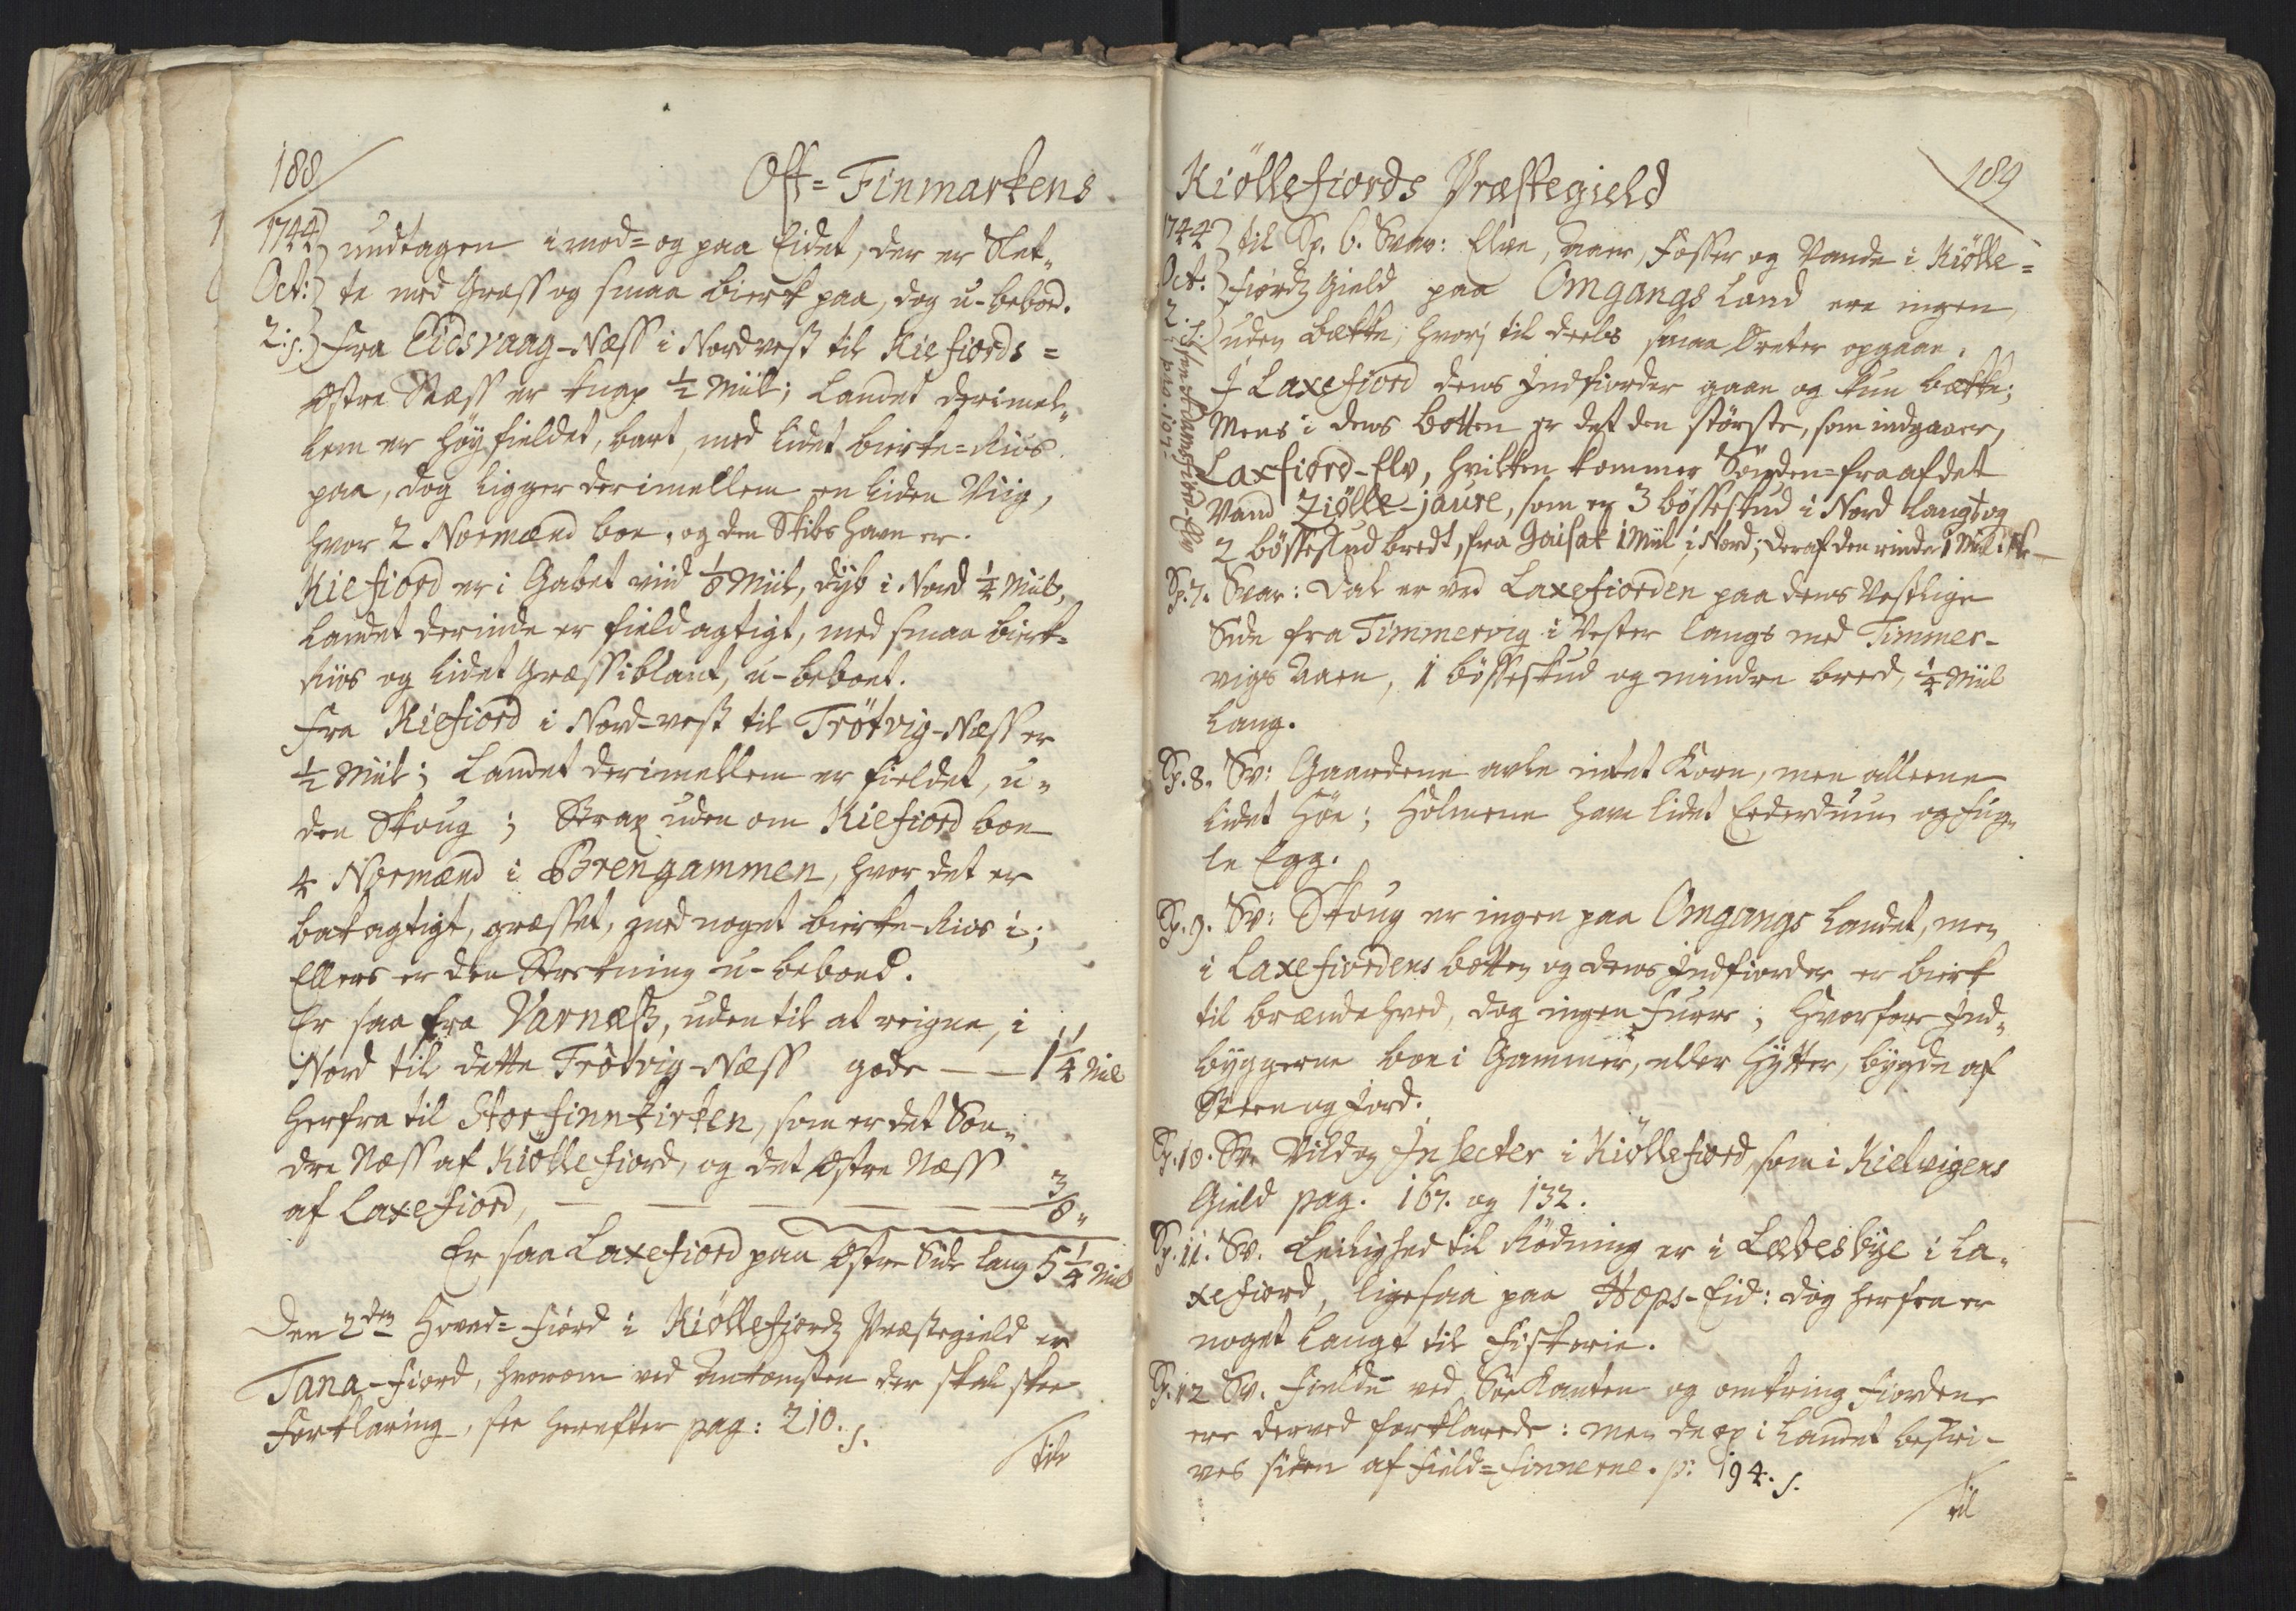 188
Ost=Finmarkens
1744 undtagen imod= og paa Eidet, der er Slet„
Oct: te med Græss og smaa Bierk paa, dog u-beboed.
2. s. Fra Eidsvaag-Næss i Nordvest til Kiefiords=
Østre Næss er knap ½ Miil; Landet derimel„
lem er høy fieldet, bart, med lidet birke=Riis
paa, dog ligger derimellem en liden Viig,
hvor 2 Normænd boe, og den Skibs havn er.
Kiefiord er i Gabet viid ⅛ Miil, dyb i Nord ¼ Miil,
Landet derinde er fieldagtigt, med smaa birk=
Riis og lidet Græss iblant, u-beboet.
Fra Kiefiord i Nord-vest til Trötvig-Næss er
½ Miil; Landet derimellem er fieldet, u„
den Skoug; Strax uden om Kiefiord boe
4 Normænd i Brengammen, hvor det er
bakagtigt, græsset, med noget birke-Riis i;
Ellers er den Strekning u-beboed.
Er saa fra Varnæss, uden til at reigne, i
Nord til dette Trötvig-Næss gode — — 1 ¼ Miil
Herfra til Storfinnkirken, som er det Søn„
dre Næss af Kiöllefiord, og det Østre Næss
af Laxefiord, — — — — — 3/8 „
Er saa Laxefiord paa Østre Side lang 5 ¼ Miil
Den 2den Hoved=Fiord i Kiöllefiords Præstegield er
Tana-fiord, hvorom ved Ankomsten der skal skee
Forklaring, see herefter pag: 210. s.
til
Kiöllefiords Præstegield
189
1744 til Sp. 6. Svar: Elve, Aaer, Fosser og Vande i Kiölle=
Oct. fiords Gield paa Omgangs Land ere ingen,
2. s. uden Bække, hvori til deels smaa Ørreter opgaae.
I Laxefiord dens Indfiorder gaae og kun bække;
Mens i dens Botten er det den største, som indgaaer,
Laxfiord-Elv, hvilken kommer Sönden=fra af det
Vand Ziölle-jaure, som er 3 bøsseskud i Nord langt og
2 bøsseskud bredt, fra Gaisak 1 Miil i Nord; deraf den rinder 1 Miil
see Adamsfiord-Elv pag. 107.
Sp. 7. Svar: Dal er ved Laxefiorden paa dens Vestlige
Side fra Timmervig i Vester langs med Timmer-
vigs Aaen, 1 bøsseskud og mindre bred, ¼ Miil
Lang.
Sp. 8. Sv: Gaardene avle intet Korn, men alleene
lidet Høe; Holmene have lidet Ederduun og Fug„
le Egg.
Sp. 9. Sv: Skoug er ingen paa Omgangs Landet, men
i Laxefiordens botten og dens Indfiorder er birk
til brændeved, dog ingen Furre; Hvorfore Ind„
byggerne boe i Gammer, eller Hytter, bygde af
Steen og Jord.
Sp. 10. Sv. Vild og Insecter i Kiöllefiord, som i Kielvigens
Gield pag. 167. og 132.
Sp. 11. Sv. Leilighed til Rödning er i Læbesbye i La„
xefiord, ligesaa paa Hops-Eid: dog herfra er
noget langt til Fiskerie.
Sp. 12 Sv. Fielde ved Søe Kanten og omkring Fiordene
ere derved forklarede: men de op i Landet beskri-
ves siden af Field=Finnerne. p: 194. s.
til